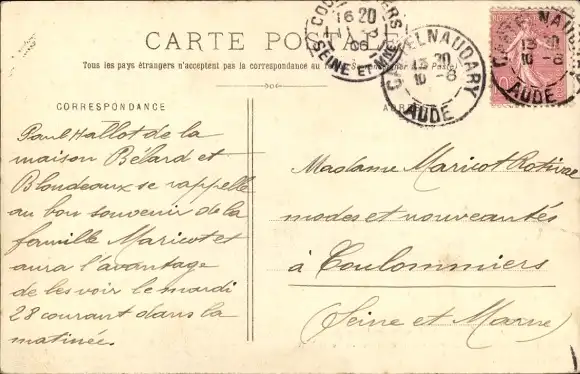 CARTE POSTALE
Tous les pays étrangers n'acceptent pas la correspondance au
CORRESPONDANCE
Paul Hallot de la
maison Bélard et
Blondeaux se rappelle
au bon souvenir de la
famille Maricot et
aura l'avantage
de les voir le mardi
28 courant dans la
matinée.
16 20
11 - 8
06
SEINE ET MNE
CASTELNAUDARY
13 30
10 - 8
AUDE
CASTELNAUDARY
13 30
10 - 8
AUDE
Madame Maricot
modes et nouveautés
à Coulommiers
(Seine et Marne)